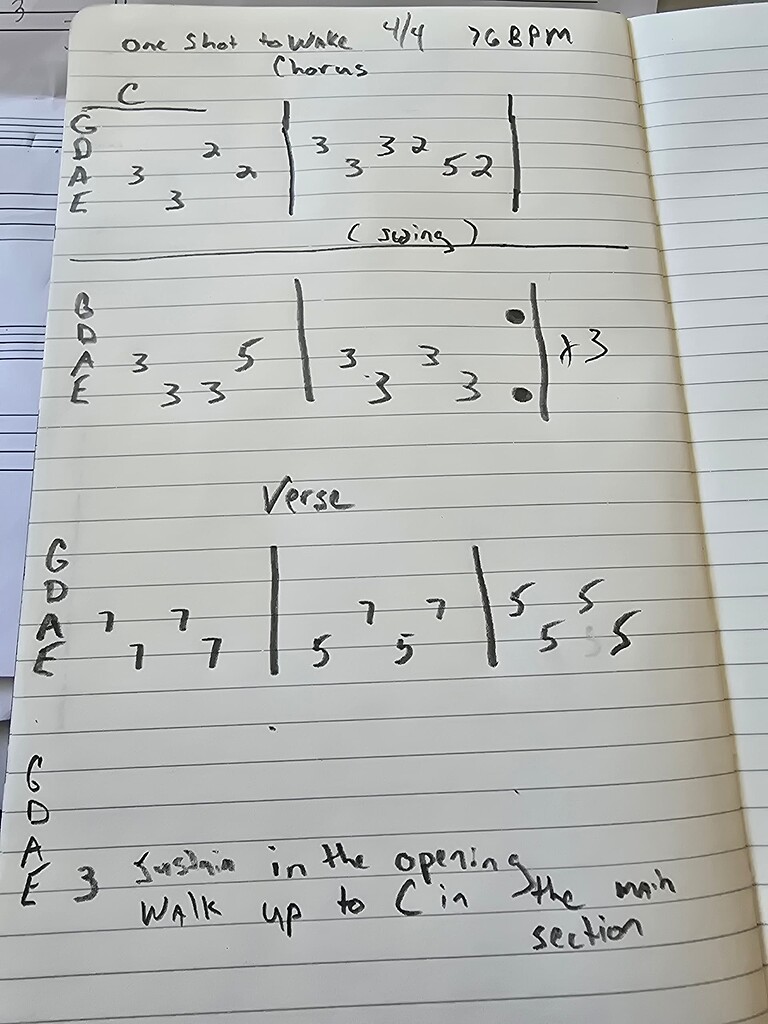 3
One Shot to Wake 4/4 76 BPM
Chorus
C
G
D 2 3 3 2
A 3 2 3 5 2
E 3
(swing)
G
D
A 3 5 3 3 x3
E 3 3 3 3
Verse
G
D
A 7 7 7 7 5 5
E 7 7 5 5 5 5 5
G
D
A Sustain in the opening
E 3 Walk up to C in the main
section